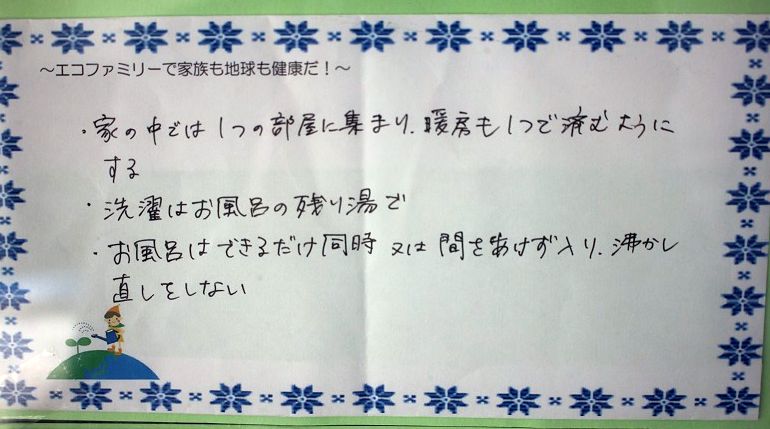 ～エコファミリーで家族も地球も健康だ！～
・家の中では1つの部屋に集まり、暖房も1つで済むように
する
・洗濯はお風呂の残り湯で
・お風呂はできるだけ同時又は間をあけず入り、沸かし
直しをしない